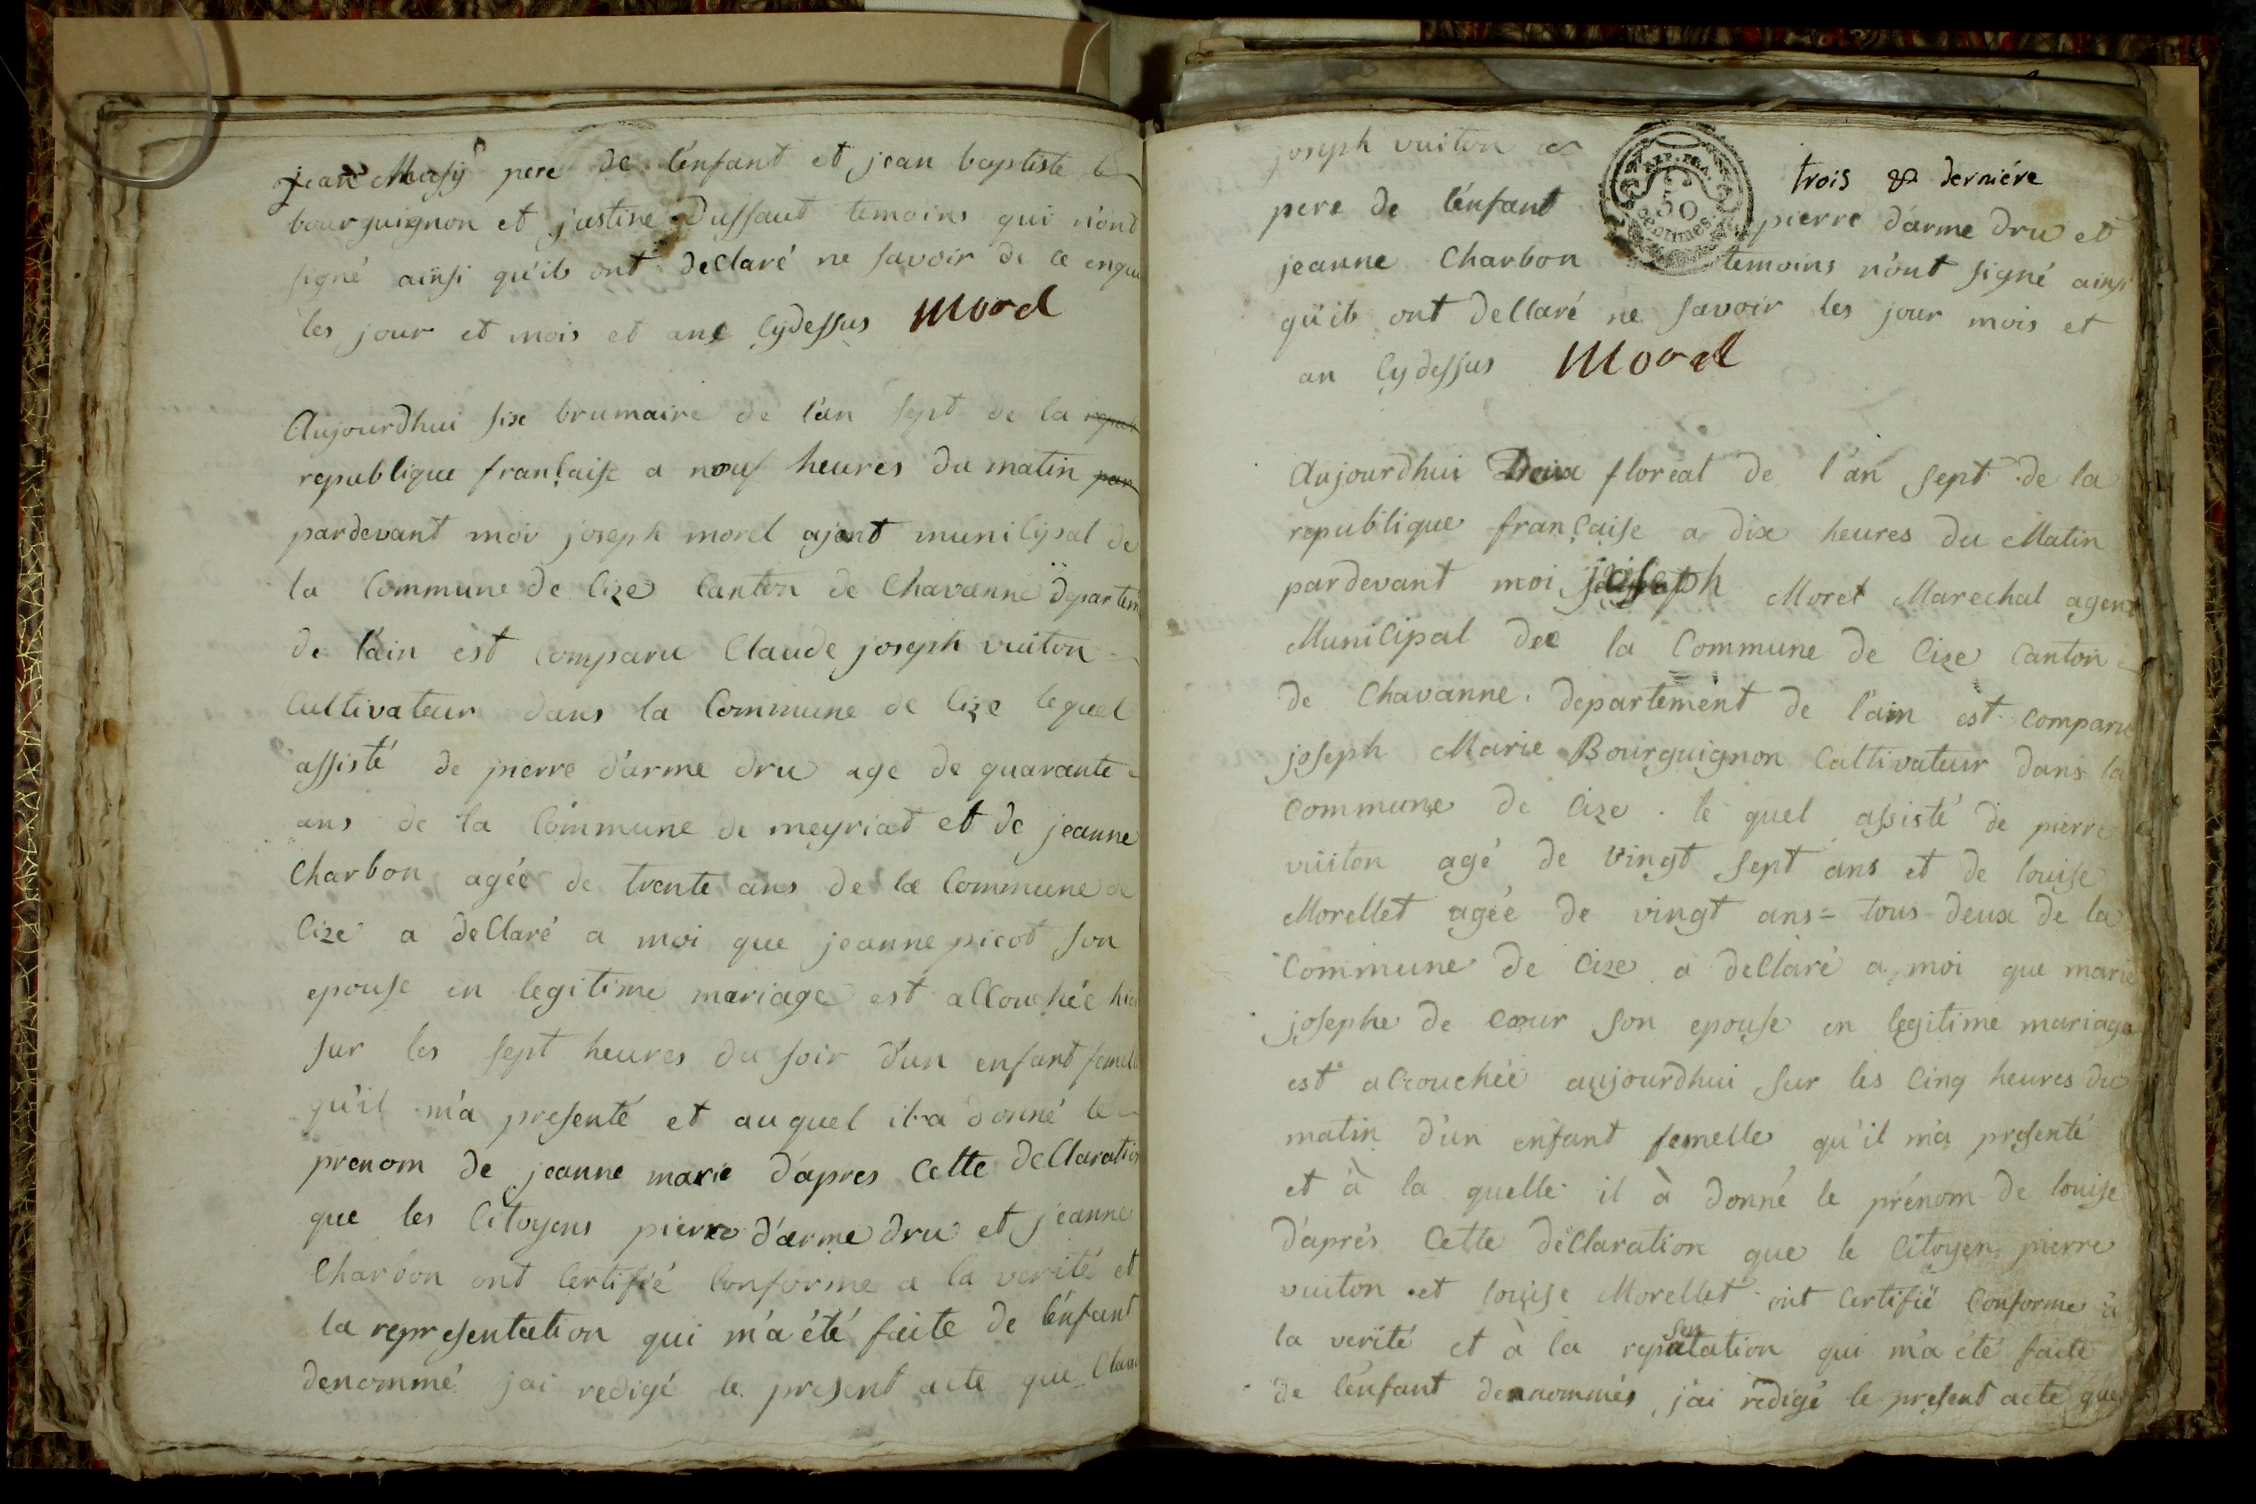 jean Masy pere de l'enfant et jean baptiste le
bourguignon et justine Dussaut temoins qui n'ont
signé ainsi qu'ils ont declaré ne savoir de ce enqui
les jour et mois et ans Cydessus Morel
Aujourdhui six brumaire de l'an sept de la repub
republique francaise a neuf heures du matin par
pardevant moi joseph morel ajent municipal de
la Commune de Cize Canton de Chavanne departem
de l'ain est Comparu Claude joseph vuiton
Cultivateur dans la Commune de Cize lequel
assisté de pierre d'arme dru age de quarante
ans de la Commune de meyriat et de jeanne
Charbon agée de trente ans de la Commune de
Cize a declaré a moi que jeanne picot son
epouse en legitime mariage est accouchée hier
sur les sept heures du soir d'un enfant femelle
qu'il m'a presenté et auquel il a donné le
prenom de jeanne marie d'apres Cette declaration
que les Citoyens pierre d'arme dru et jeanne
Charbon ont Certifié Conforme a la verité et
la representation qui m'a été faite de l'enfant
denommé j'ai redigé le present acte que Claud
joseph vuiton &
REP. FRA.
50
centimes
trois & derniére
pere de l'enfant pierre d'arme dru et
jeanne Charbon temoins n'ont signé ainsi
qu'ils ont declaré ne savoir les jour mois et
an Cydessus Morel
Aujourdhui Deux floréal de l'an sept de la
republique francaise a dix heures du Matin
pardevant moi joseph Moret Marechal agent
Municipal de la Commune de Cize Canton
de Chavanne departement de l'ain est comparu
joseph Marie Bourguignon Cultivateur dans la
Commune de Cize le quel assisté de pierre
vuiton agé de vingt sept ans et de louise
Morellet agée de vingt ans = tous deux de la
Commune de Cize a declaré a moi que marie
josephe de Cœur son epouse en legitime mariage
est accouchée aujourdhui sur les Cinq heures du
matin d'un enfant femelle qu'il m'a presenté
et à la quelle il à donné le prénom de louise
d'aprés Cette déclaration que le Citoyen pierre
vuiton et louise Morellet ont Certifié Conforme à
la verité et à la repsentation qui m'a été faite
de l'enfant dennommés j'ai redigé le present acte que